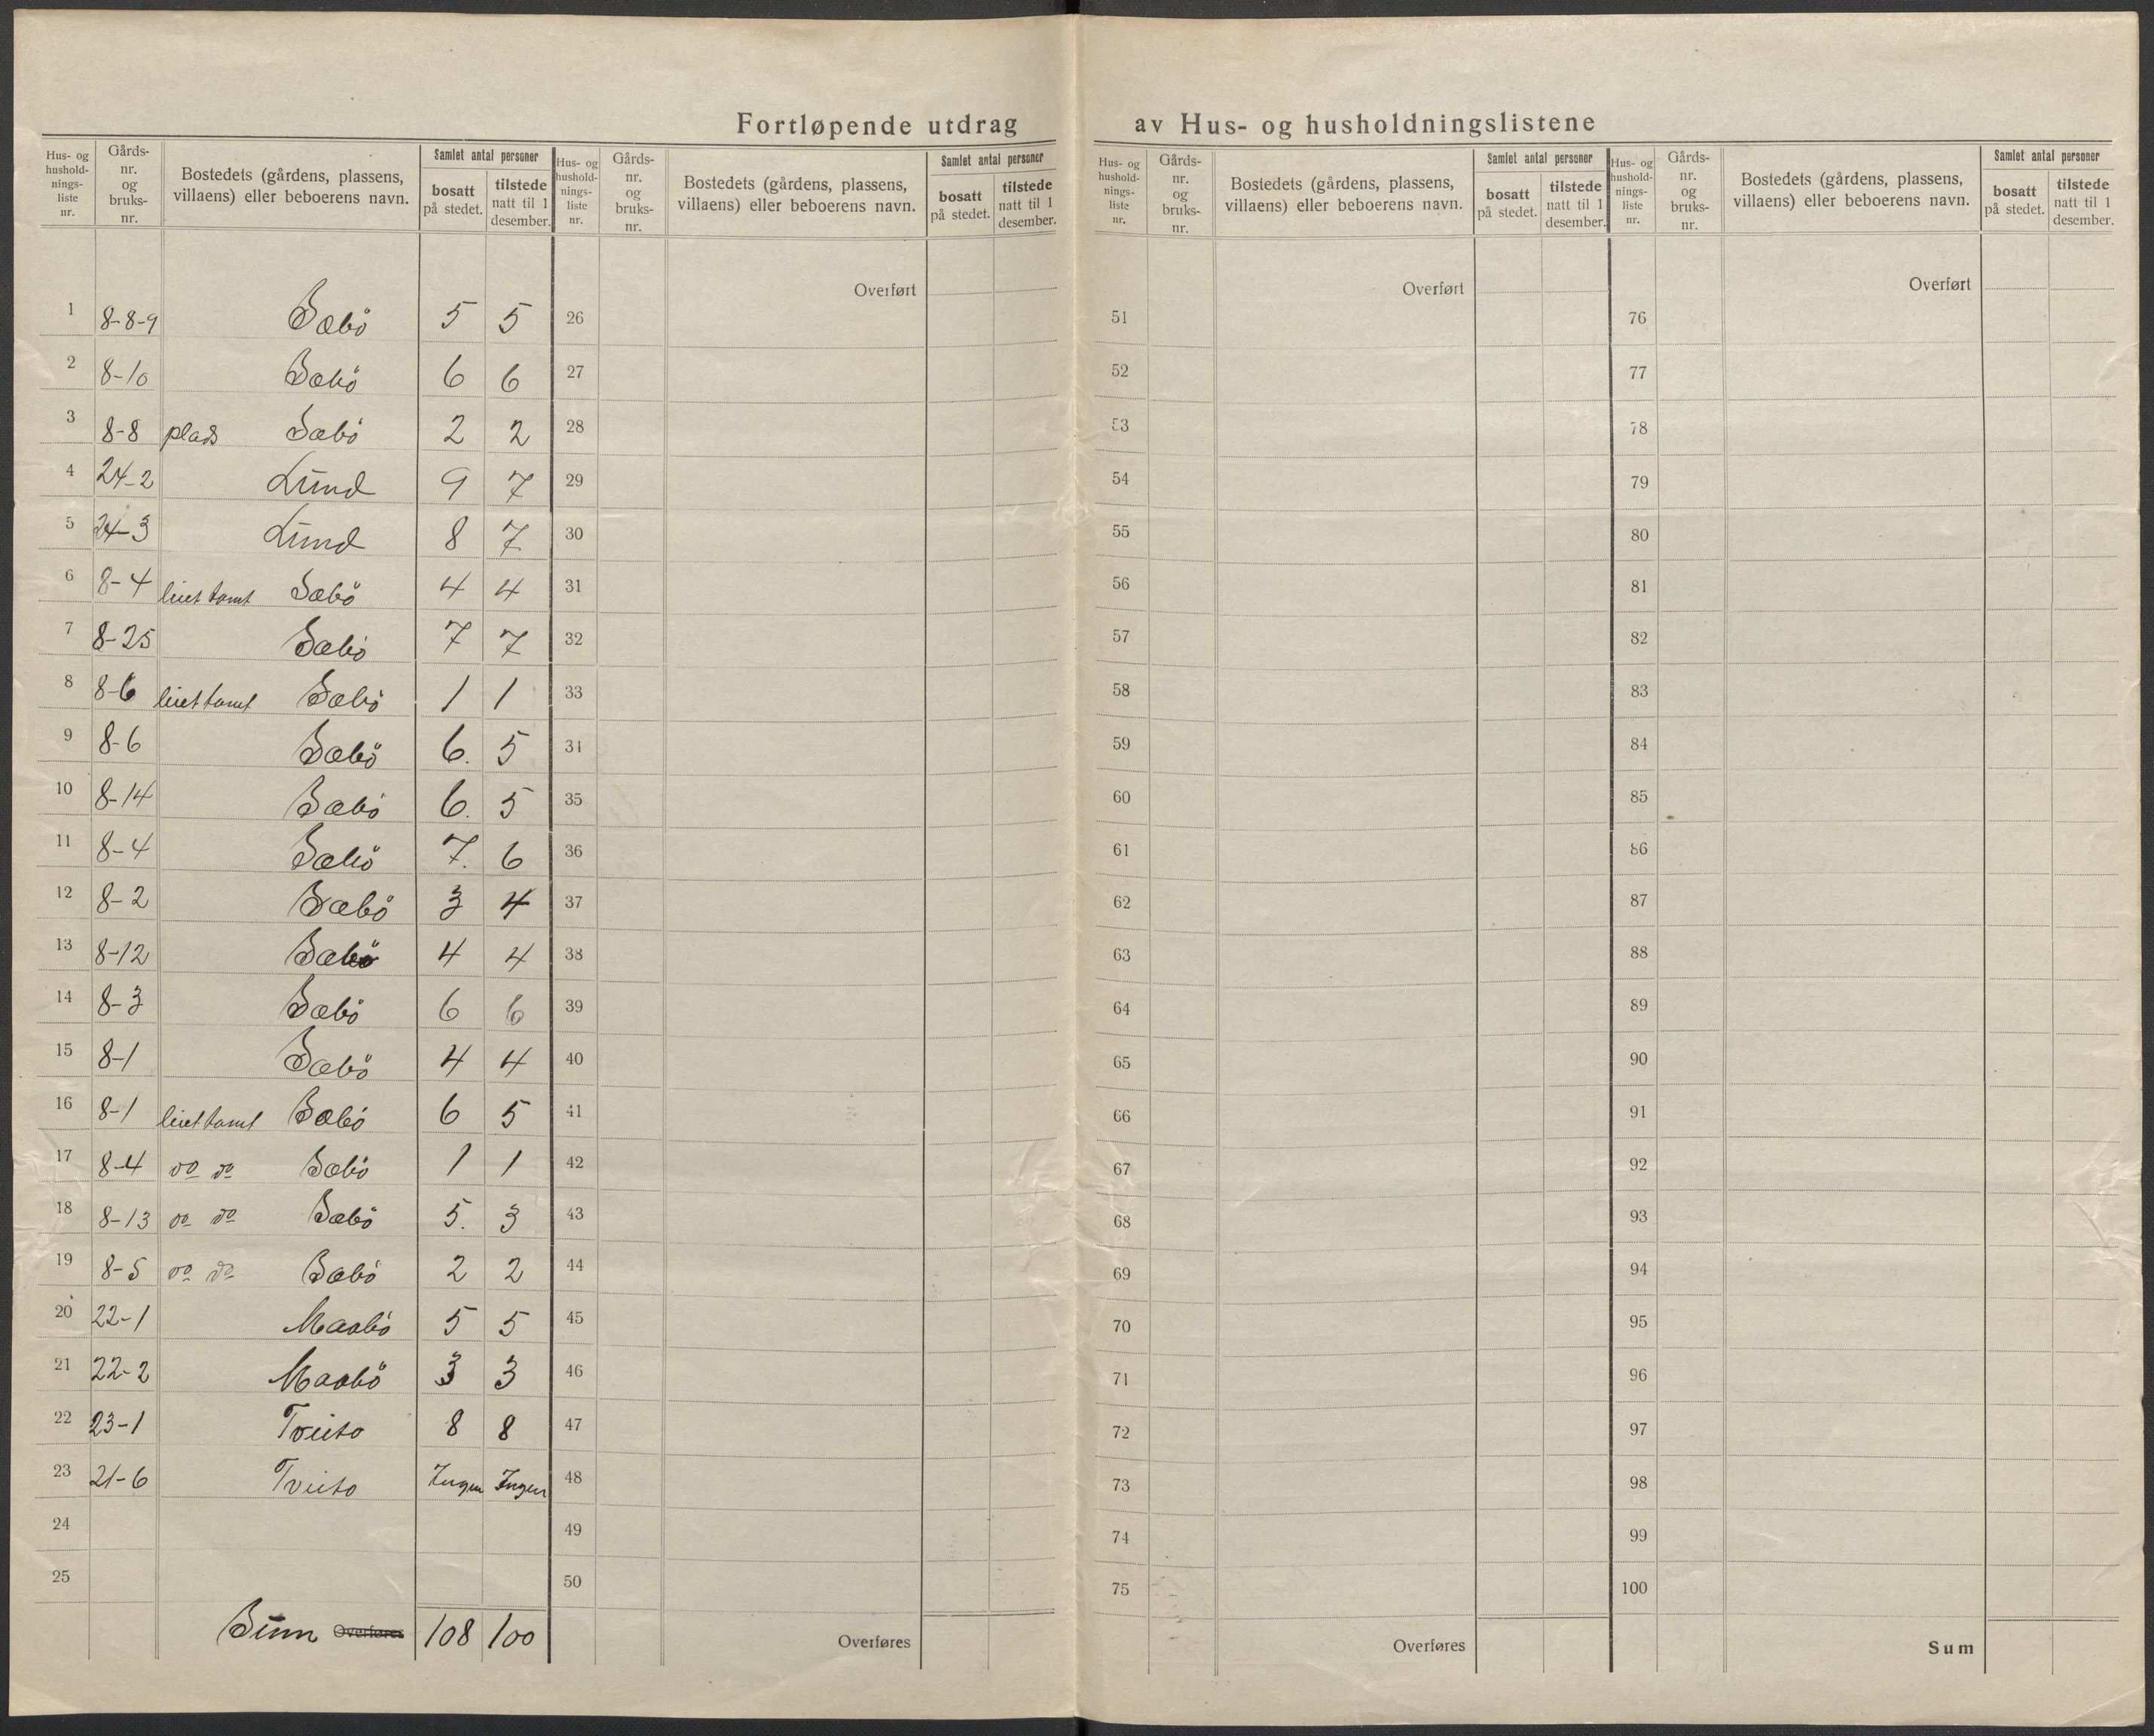 Fortløpende utdrag av Hus- og husholdningslistene
Hus- og hushold-nings-liste nr. Gårds-nr. og bruks-nr. Bostedets (gårdens, plassens, villaens) eller beboerens navn. Samlet antal personer bosatt på stedet. tilstede natt til 1 desember.
Hus- og hushold-nings-liste nr. Gårds-nr. og bruks-nr. Bostedets (gårdens, plassens, villaens) eller beboerens navn. Samlet antal personer bosatt på stedet. tilstede natt til 1 desember.
Hus- og hushold-nings-liste nr. Gårds-nr. og bruks-nr. Bostedets (gårdens, plassens, villaens) eller beboerens navn. Samlet antal personer bosatt på stedet. tilstede natt til 1 desember.
Hus- og hushold-nings-liste nr. Gårds-nr. og bruks-nr. Bostedets (gårdens, plassens, villaens) eller beboerens navn. Samlet antal personer bosatt på stedet. tilstede natt til 1 desember.
Overført Overført Overført
1 8-8-9 Sæbö 5 5 26 51 76
2 8-10 Sæbö 6 6 27 52 77
3 8-8 plads Sæbö 2 2 28 53 78
4 24-2 Lund 9 7 29 54 79
5 24-3 Lund 8 7 30 55 80
6 8-4 leiet tomt Sæbö 4 4 31 56 81
7 8-25 Sæbö 7 7 32 57 82
8 8-6 leiet tomt Sæbö 1 1 33 58 83
9 8-6 Sæbö 6. 5 34 59 84
10 8-14 Sæbö 6. 5 35 60 85
11 8-4 Sæbö 7. 6 36 61 86
12 8-2 Sæbö 3 4 37 62 87
13 8-12 Sæbö 4 4 38 63 88
14 8-3 Sæbö 6 6 39 64 89
15 8-1 Sæbö 4 4 40 65 90
16 8-1 leiet tomt Sæbö 6 5 41 66 91
17 8-4 do do Sæbö 1 1 42 67 92
18 8-13 do do Sæbö 5. 3 43 68 93
19 8-5 do do Sæbö 2 2 44 69 94
20 22-1 Maabö 5 5 45 70 95
21 22-2 Maabö 3 3 46 71 96
22 23-1 Tveito 8 8 47 72 97
23 21-6 Tveito Ingen Ingen 48 73 98
24 49 74 99
25 50 75 100
Sum Overføres 108 100 Overføres Overføres Sum